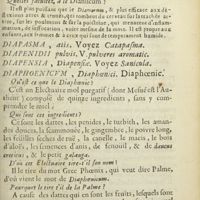 Quelles facultez, a le Diarhicum?
Il est plus puissant que le
fluxions acres & 
ctie, sur les poulmons & sur la poictrine, qui menacent d'inflam-
mation, & de suffocation, ou de corruption. Il est propre aux
enfans aux femmes & à ceux qui sont de temperament humide.
DIAPASMA, atis. Voyez Catapasma.
DIAPENIDII pulvis. V. pulveres aromatic.
DIAPENSIA, Diapensiæ. Voyez Sanicula.
DIAPHOENICUM, Diaphœnici. Diaphœnic.
Qu'est ce que le Diaphœnic?
C'est un Electuaire mol purgatif (dont Mesué est l'Au-
theur) composé de quinze ingrediens, sans y com-
prendre le miel.
Qui sont ces ingrediens?
Ce sont les dattes, les penides, le turbith, les aman-
des douces, la scammonée, le gingembre, le poivre long,
les feuilles seches de ruë, la canelle, le macis, le bois
d'aloës, les semences d'anis, de fenouil, & de daucus
creticus, & le petit galanga.
D'où cet Electuaire tire-t'il son nom?
Il le tire du mot Grec Phœnix, qui veut dire Palme,
d'où vient le mot de Diaphœnicum.
Pourquoy le tire t'il de la Palme?
A cause des dattes qui en sont les fruits, lesquels sont